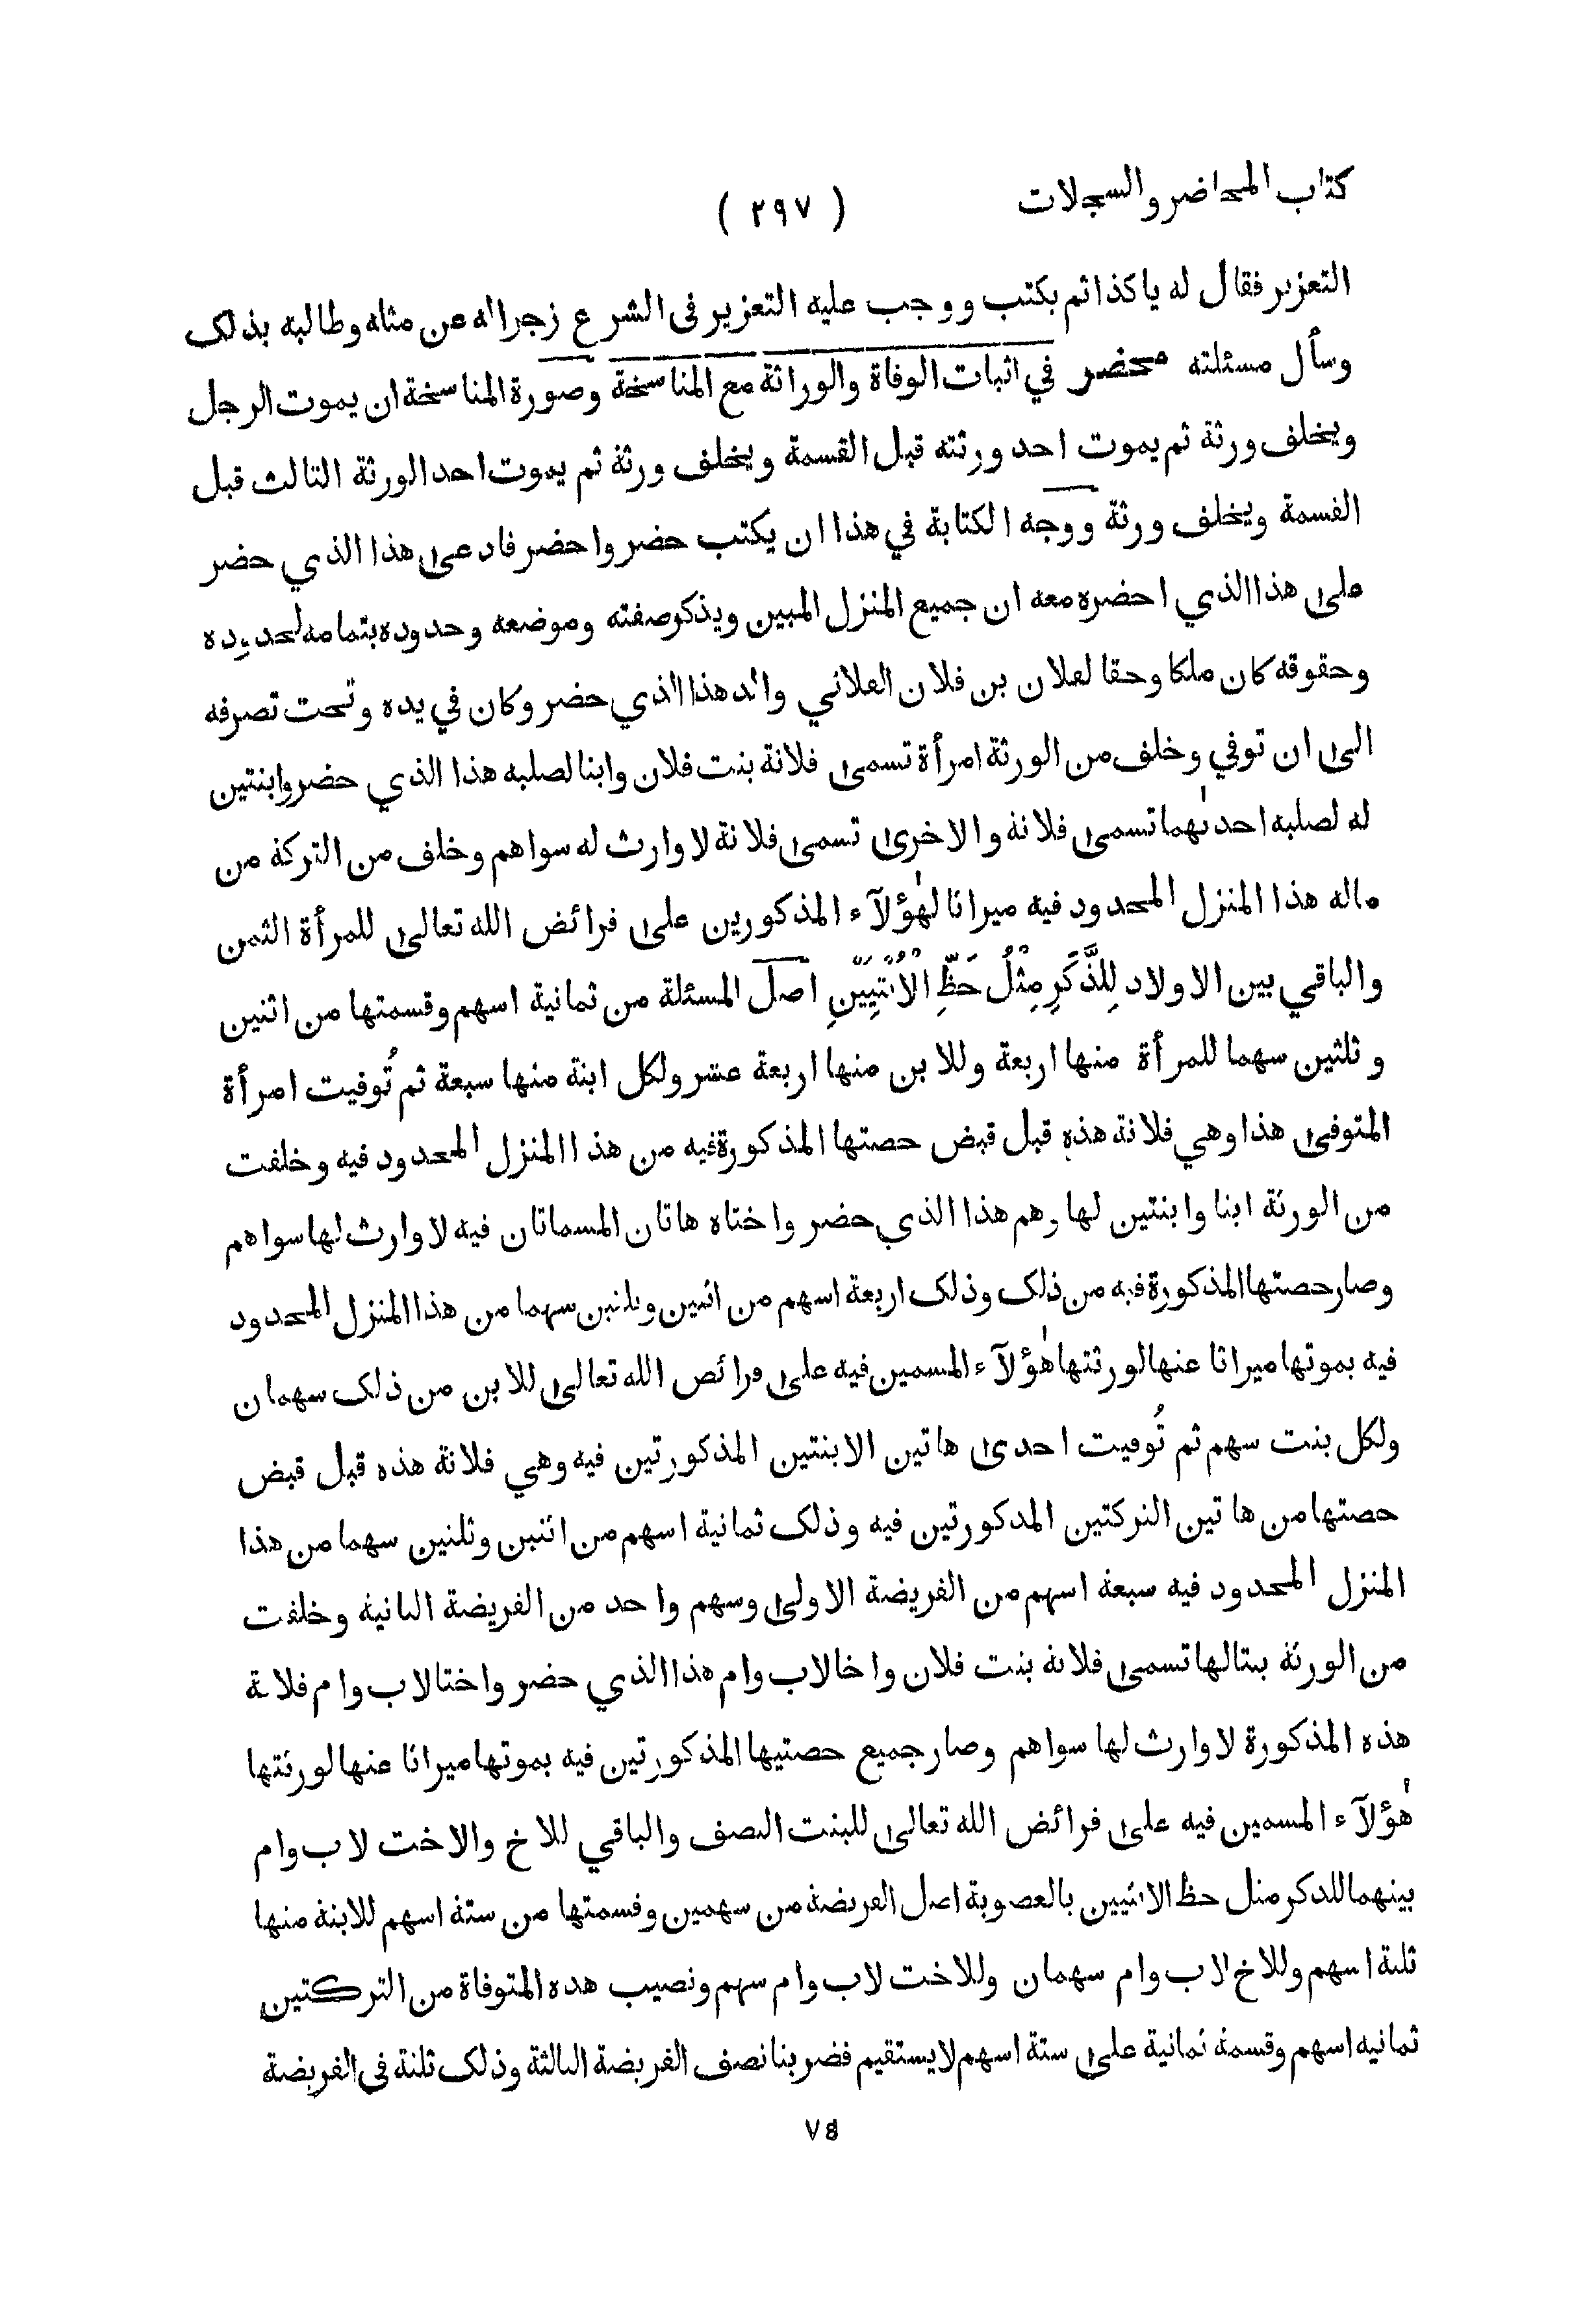 كتاب المحاضر والسجلات
( ٢٩٧ )
التعزير فقال له يا كذا ثم يكتب ووجب عليه التعزير فى الشرع زجرا له عن مثله وطالبه بذلك
وسأل مسئلته محضر في اثبات الوفاة والوراثة مع المناسخة وصورة المناسخة ان يموت الرجل
ويخلف ورثة ثم يموت احد ورثته قبل القسمة ويخلف ورثة ثم يموت احد الورثة الثالث قبل
القسمة ويخلف ورثة ووجه الكتابة في هذا ان يكتب حضر واحضر فادعى هذا الذي حضر
على هذا الذي احضره معه ان جميع المنزل المبين ويذكر صفته وموضعه وحدوده بتمامه لحديده
وحقوقه كان ملكا وحقا لفلان بن فلان الفلاني والد هذا الذي حضر وكان في يده وتحت تصرفه
الى ان توفي وخلف من الورثة امرأة تسمى فلانة بنت فلان وابنا لصلبه هذا الذي حضر وابنتين
له لصلبه احدٰىهما تسمى فلانة والاخرى تسمى فلانة لا وارث له سواهم وخلف من التركة من
ماله هذا المنزل المحدود فيه ميراثا لهٰؤلآء المذكورين على فرائض الله تعالى للمرأة الثمن
والباقي بين الاولاد لِلذَّكَرِ مِثْلُ حَظِّ الْاُنْثَيَيْنِ اصل المسئلة من ثمانية اسهم وقسمتها من اثنين
وثلثين سهما للمرأة منها اربعة وللابن منها اربعة عشر ولكل ابنة منها سبعة ثم تُوفيت امرأة
المتوفى هذا وهي فلانة هذه قبل قبض حصتها المذكورة فيه من هذا المنزل المحدود فيه وخلفت
من الورثة ابنا وابنتين لها وهم هذا الذي حضر واختاه هاتان المسماتان فيه لا وارث لها سواهم
وصار حصتها المذكورة فيه من ذلك وذلك اربعة اسهم من اثنين وثلثين سهما من هذا المنزل المحدود
فيه بموتها ميراثا عنها لورثتها هٰؤلآء المسمين فيه على فرائض الله تعالى للابن من ذلك سهمان
ولكل بنت سهم ثم تُوفيت احدى هاتين الابنتين المذكورتين فيه وهي فلانة هذه قبل قبض
حصتها من هاتين التركتين المذكورتين فيه وذلك ثمانية اسهم من اثنين وثلثين سهما من هذا
المنزل المحدود فيه سبعة اسهم من الفريضة الاولى وسهم واحد من الفريضة الثانية وخلفت
من الورثة بنتا لها تسمى فلانة بنت فلان واخا لاب وام هذا الذي حضر واختا لاب وام فلانة
هذه المذكورة لا وارث لها سواهم وصار جميع حصتيها المذكورتين فيه بموتها ميراثا عنها لورثتها
هٰؤلآء المسمين فيه على فرائض الله تعالى للبنت النصف والباقي للاخ والاخت لاب وام
بينهما للذكر مثل حظ الانثيين بالعصوبة اصل الفريضة من سهمين وقسمتها من ستة اسهم للابنة منها
ثلثة اسهم وللاخ لاب وام سهمان وللاخت لاب وام سهم ونصيب هذه المتوفاة من التركتين
ثمانية اسهم وقسمة ثمانية على ستة اسهم لا يستقيم فضربنا نصف الفريضة الثالثة وذلك ثلثة فى الفريضة